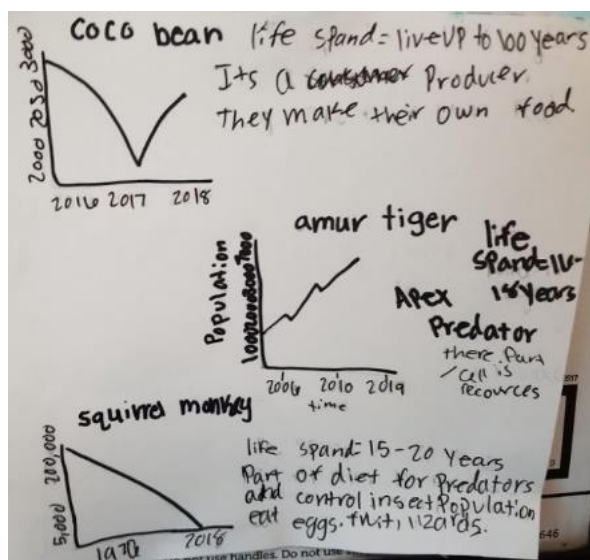 coco bean
life spand= live UP to 100 years
Its a Producer.
they make their own food
2000 2050 3000
2016 2017 2018
amur tiger
life
spand=
18 years
Apex
Predator
there part
/ call is
recources
Population
2006 2010 2019
time
squirrel monkey
life spand= 15-20 years
Part of diet for Predators
and control insect Population
eat eggs. fruit, lizards.
5,000 200,000
1970 2018
not use handles. Do not use
646